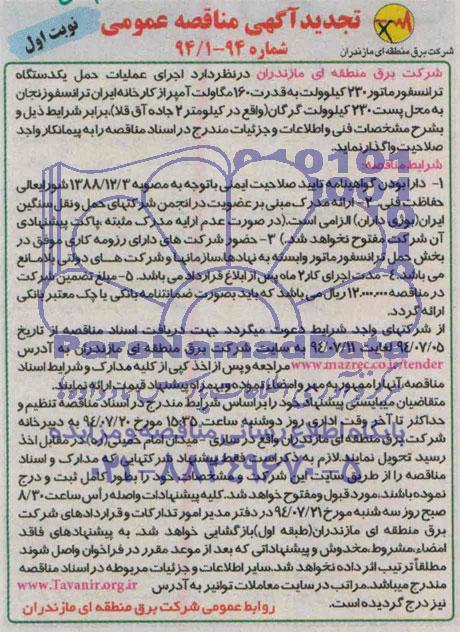 تجدید آگهی مناقصه عمومی
شماره ۹۴-۹۴/۱
نوبت اول
شرکت برق منطقه ای مازندران
شرکت برق منطقه ای مازندران درنظردارد اجرای عملیات حمل یکدستگاه
ترانسفورماتور ۲۳۰ کیلوولت به قدرت ۱۶۰ مگاولت آمپر از کارخانه ایران ترانسفو زنجان
به محل پست ۲۳۰ کیلوولت گرگان (واقع در کیلومتر ۲ جاده آق قلا)، برابر شرایط ذیل و
بشرح مشخصات فنی و اطلاعات و جزئیات مندرج در اسناد مناقصه را به پیمانکار واجد
صلاحیت واگذار نماید.
شرایط مناقصه:
۱- دارا بودن گواهینامه تایید صلاحیت ایمنی باتوجه به مصوبه ۱۳۸۸/۱۲/۳ شورایعالی
حفاظت فنی. ۲- ارائه مدرک مبنی بر عضویت در انجمن شرکتهای حمل و نقل سنگین
ایران (بوژی داران) الزامی است. (در صورت عدم ارایه مدرک مثبته، پاکت پیشنهادی
آن شرکت مفتوح نخواهد شد.) ۳- حضور شرکت های دارای رزومه کاری موفق در
بخش حمل ترانسفورماتور وابسته به نهادها، سازمانها و شرکت های دولتی بلامانع
می باشد. ۴- مدت اجرای کار ۲ ماه پس از ابلاغ قرارداد می باشد. ۵- مبلغ تضمین شرکت
در مناقصه ۱۲.۰۰۰.۰۰۰ ریال می باشد که باید بصورت ضمانتنامه بانکی یا چک معتبر بانکی
ارائه گردد.
از شرکتهای واجد شرایط دعوت میگردد جهت دریافت اسناد مناقصه از تاریخ
۹۴/۰۷/۰۵ لغایت ۹۴/۰۷/۱۱ به سایت شرکت برق منطقه ای مازندران به آدرس
www.mazrec.co.ir/tender مراجعه و پس از اخذ کپی از کلیه مدارک و شرایط اسناد
مناقصه آنها را ممهور به مهر و امضاء نموده و بهمراه پیشنهاد قیمت ارائه نمایند.
متقاضیان میبایستی پیشنهاد خود را بر اساس شرایط مندرج در اسناد مناقصه تنظیم و
حداکثر تا آخر وقت اداری روز دوشنبه ساعت ۱۵:۳۵ مورخ ۹۴/۰۷/۲۰ به دبیرخانه
شرکت برق منطقه ای مازندران واقع در ساری - میدان امام خمینی (ره) در مقابل اخذ
رسید تحویل نمایند. لازم به ذکر است فقط پیشنهاد شرکتهایی که مدارک و اسناد
مناقصه را از طریق سایت این شرکت و مشخصات خود را بطور کامل ثبت و درج
نموده باشند، مورد قبول و مفتوح خواهد شد. کلیه پیشنهادات واصله رأس ساعت ۸/۳۰
صبح روز سه شنبه مورخ ۹۴/۰۷/۲۱ در دفتر مدیر امور تدارکات و قراردادهای شرکت
برق منطقه ای مازندران (طبقه اول) بازگشایی خواهد شد. به پیشنهادهای فاقد
امضاء، مشروط، مخدوش و پیشنهاداتی که بعد از موعد مقرر در فراخوان واصل شوند
مطلقاً ترتیب اثر داده نخواهد شد. سایر اطلاعات و جزئیات مربوطه در اسناد مناقصه
مندرج میباشد. مراتب در سایت معاملات توانیر به آدرس www.Tavanir.org.ir
نیز درج گردیده است.
روابط عمومی شرکت برق منطقه ای مازندران
ParsNamadData
۰۲۱-۸۸۳۴۹۶۷۰-۵